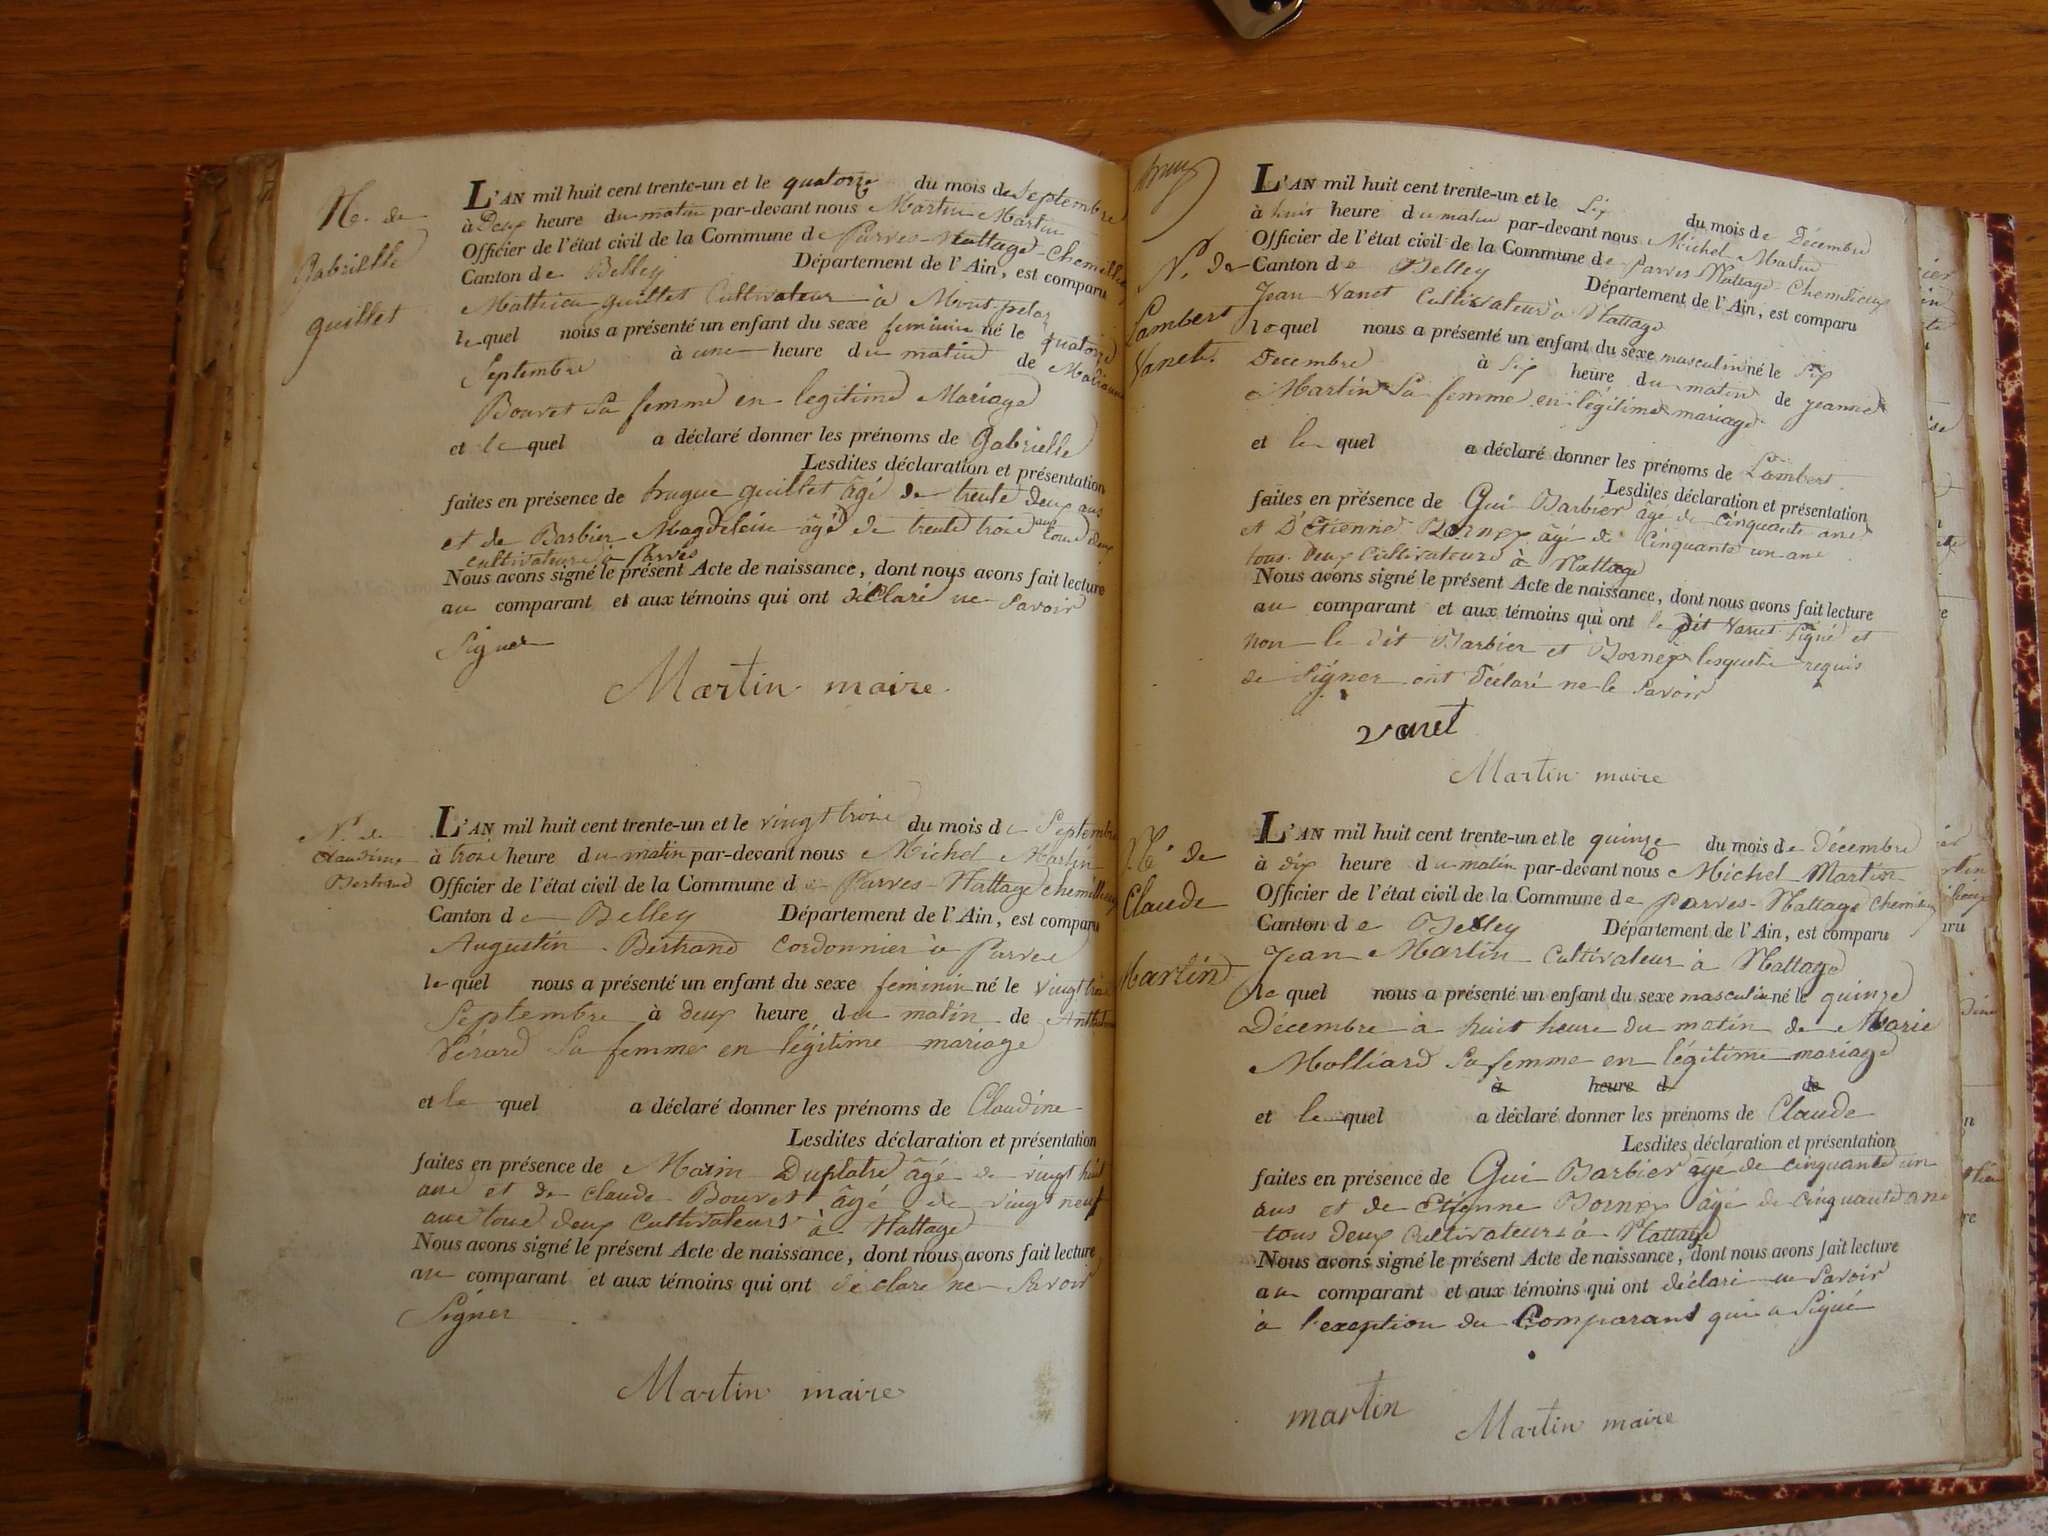 N. de
Gabrielle
guillet
L'AN mil huit cent trente-un et le quatorze du mois de Septembre
à Deux heure du matin par-devant nous Martin Martin
Officier de l'état civil de la Commune de Parves-Nattage-Chemillieu
Canton de Belley Département de l'Ain, est comparu
Mathieu guillet Cultivateur à
lequel nous a présenté un enfant du sexe feminin né le quatorze
Septembre à une heure du matin de
Bouvet Sa femme en legitime Mariage
et le quel a déclaré donner les prénoms de Gabrielle
Lesdites déclaration et présentation
faites en présence de hugue guillet âgé de trente deux ans
et de Barbier Magdelein âgé de trente trois ans tous deux
cultivateurs à Parves
Nous avons signé le présent Acte de naissance, dont nous avons fait lecture
au comparant et aux témoins qui ont déclaré ne Savoir
Signer
Martin maire
N. de
Claudine
Bertrand
L'AN mil huit cent trente-un et le vingt trois du mois de Septembre
à trois heure du matin par-devant nous Michel Martin
Officier de l'état civil de la Commune de Parves-Nattage chemillieu
Canton de Belley Département de l'Ain, est comparu
Augustin Bertrand Cordonnier à Parves
lequel nous a présenté un enfant du sexe feminin né le vingt trois
Septembre à deux heure du matin de
Vérard Sa femme en légitime mariage
et le quel a déclaré donner les prénoms de Claudine
Lesdites déclaration et présentation
faites en présence de Marin Duplatre âgé de vingt huit
ans et de Claude Bouvet âgé de vingt neuf
ans tous deux Cultivateurs à Nattage
Nous avons signé le présent Acte de naissance, dont nous avons fait lecture
au comparant et aux témoins qui ont déclaré ne Savoir
Signer
Martin maire
N. de
Lambert
Vanet
L'AN mil huit cent trente-un et le Six du mois de Décembre
à huit heure du matin par-devant nous Michel Martin
Officier de l'état civil de la Commune de Parves Nattage-Chemillieu
Canton de Belley Département de l'Ain, est comparu
Jean Vanet Cultivateur à Nattage
lequel nous a présenté un enfant du sexe masculin né le Six
Decembre à Six heure du matin de jeanne
Martin Sa femme en légitime mariage
et le quel a déclaré donner les prénoms de Lambert
Lesdites déclaration et présentation
faites en présence de Gui Barbier âgé de Cinquante ans
et D'Etienne Bornex âgé de Cinquante un ans
tous Deux Cultivateurs à Nattage
Nous avons signé le présent Acte de naissance, dont nous avons fait lecture
au comparant et aux témoins qui ont le dit Vanet Signé et
non le dit Barbier et Bornex lesquels requis
de Signer ont Déclaré ne le Savoir
vanet
Martin maire
N. de
Claude
Martin
L'AN mil huit cent trente-un et le quinze du mois de décembre
à dix heure du matin par-devant nous Michel Martin
Officier de l'état civil de la Commune de Parves-Nattage Chemillieu
Canton de Belley Département de l'Ain, est comparu
Jean Martin Cultivateur à Nattage
le quel nous a présenté un enfant du sexe masculin né le quinze
Décembre à huit heure du matin de Marie
Molliard Sa femme en légitime mariage
à heure d de
et le quel a déclaré donner les prénoms de Claude
Lesdites déclaration et présentation
faites en présence de Gui Barbier âgé de cinquante un
ans et de Etienne Bornex âgé de cinquante ans
tous Deux Cultivateurs à Nattage
Nous avons signé le présent Acte de naissance, dont nous avons fait lecture
au comparant et aux témoins qui ont déclaré ne Savoir
à l'exeption du Comparant qui a Signé
martin
Martin maire